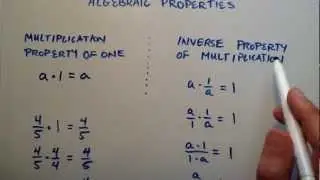 ALGEBRAIC PROPERTIES
MULTIPLICATION
PROPERTY OF ONE
a · 1 = a
4/5 · 1 = 4/5
4/5 · 4/4 = 4/5
INVERSE PROPERTY
OF MULTIPLICATION
a · 1/a = 1
a/1 · 1/a = 1
a·1/1·a = 1